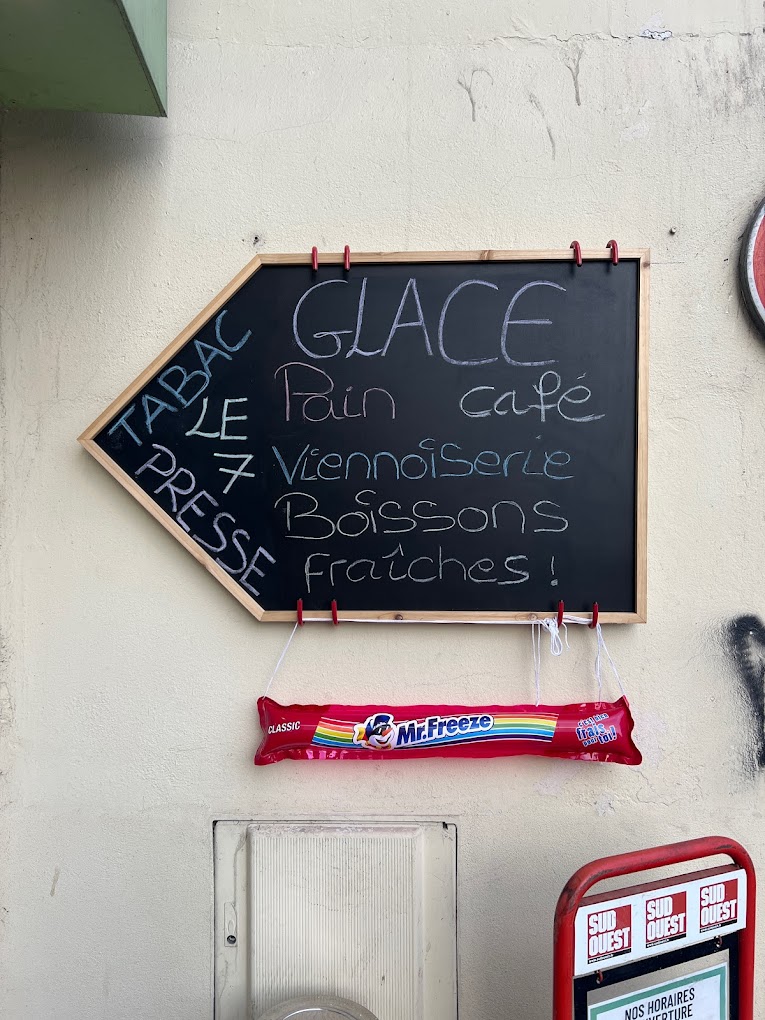 GLACE
Pain café
Viennoiserie
Boissons
fraîches !
TABAC
LE
7
PRESSE
CLASSIC
Mr.Freeze
c'est bien
frais
pour toi!
SUD OUEST
SUD OUEST
SUD OUEST
NOS HORAIRES